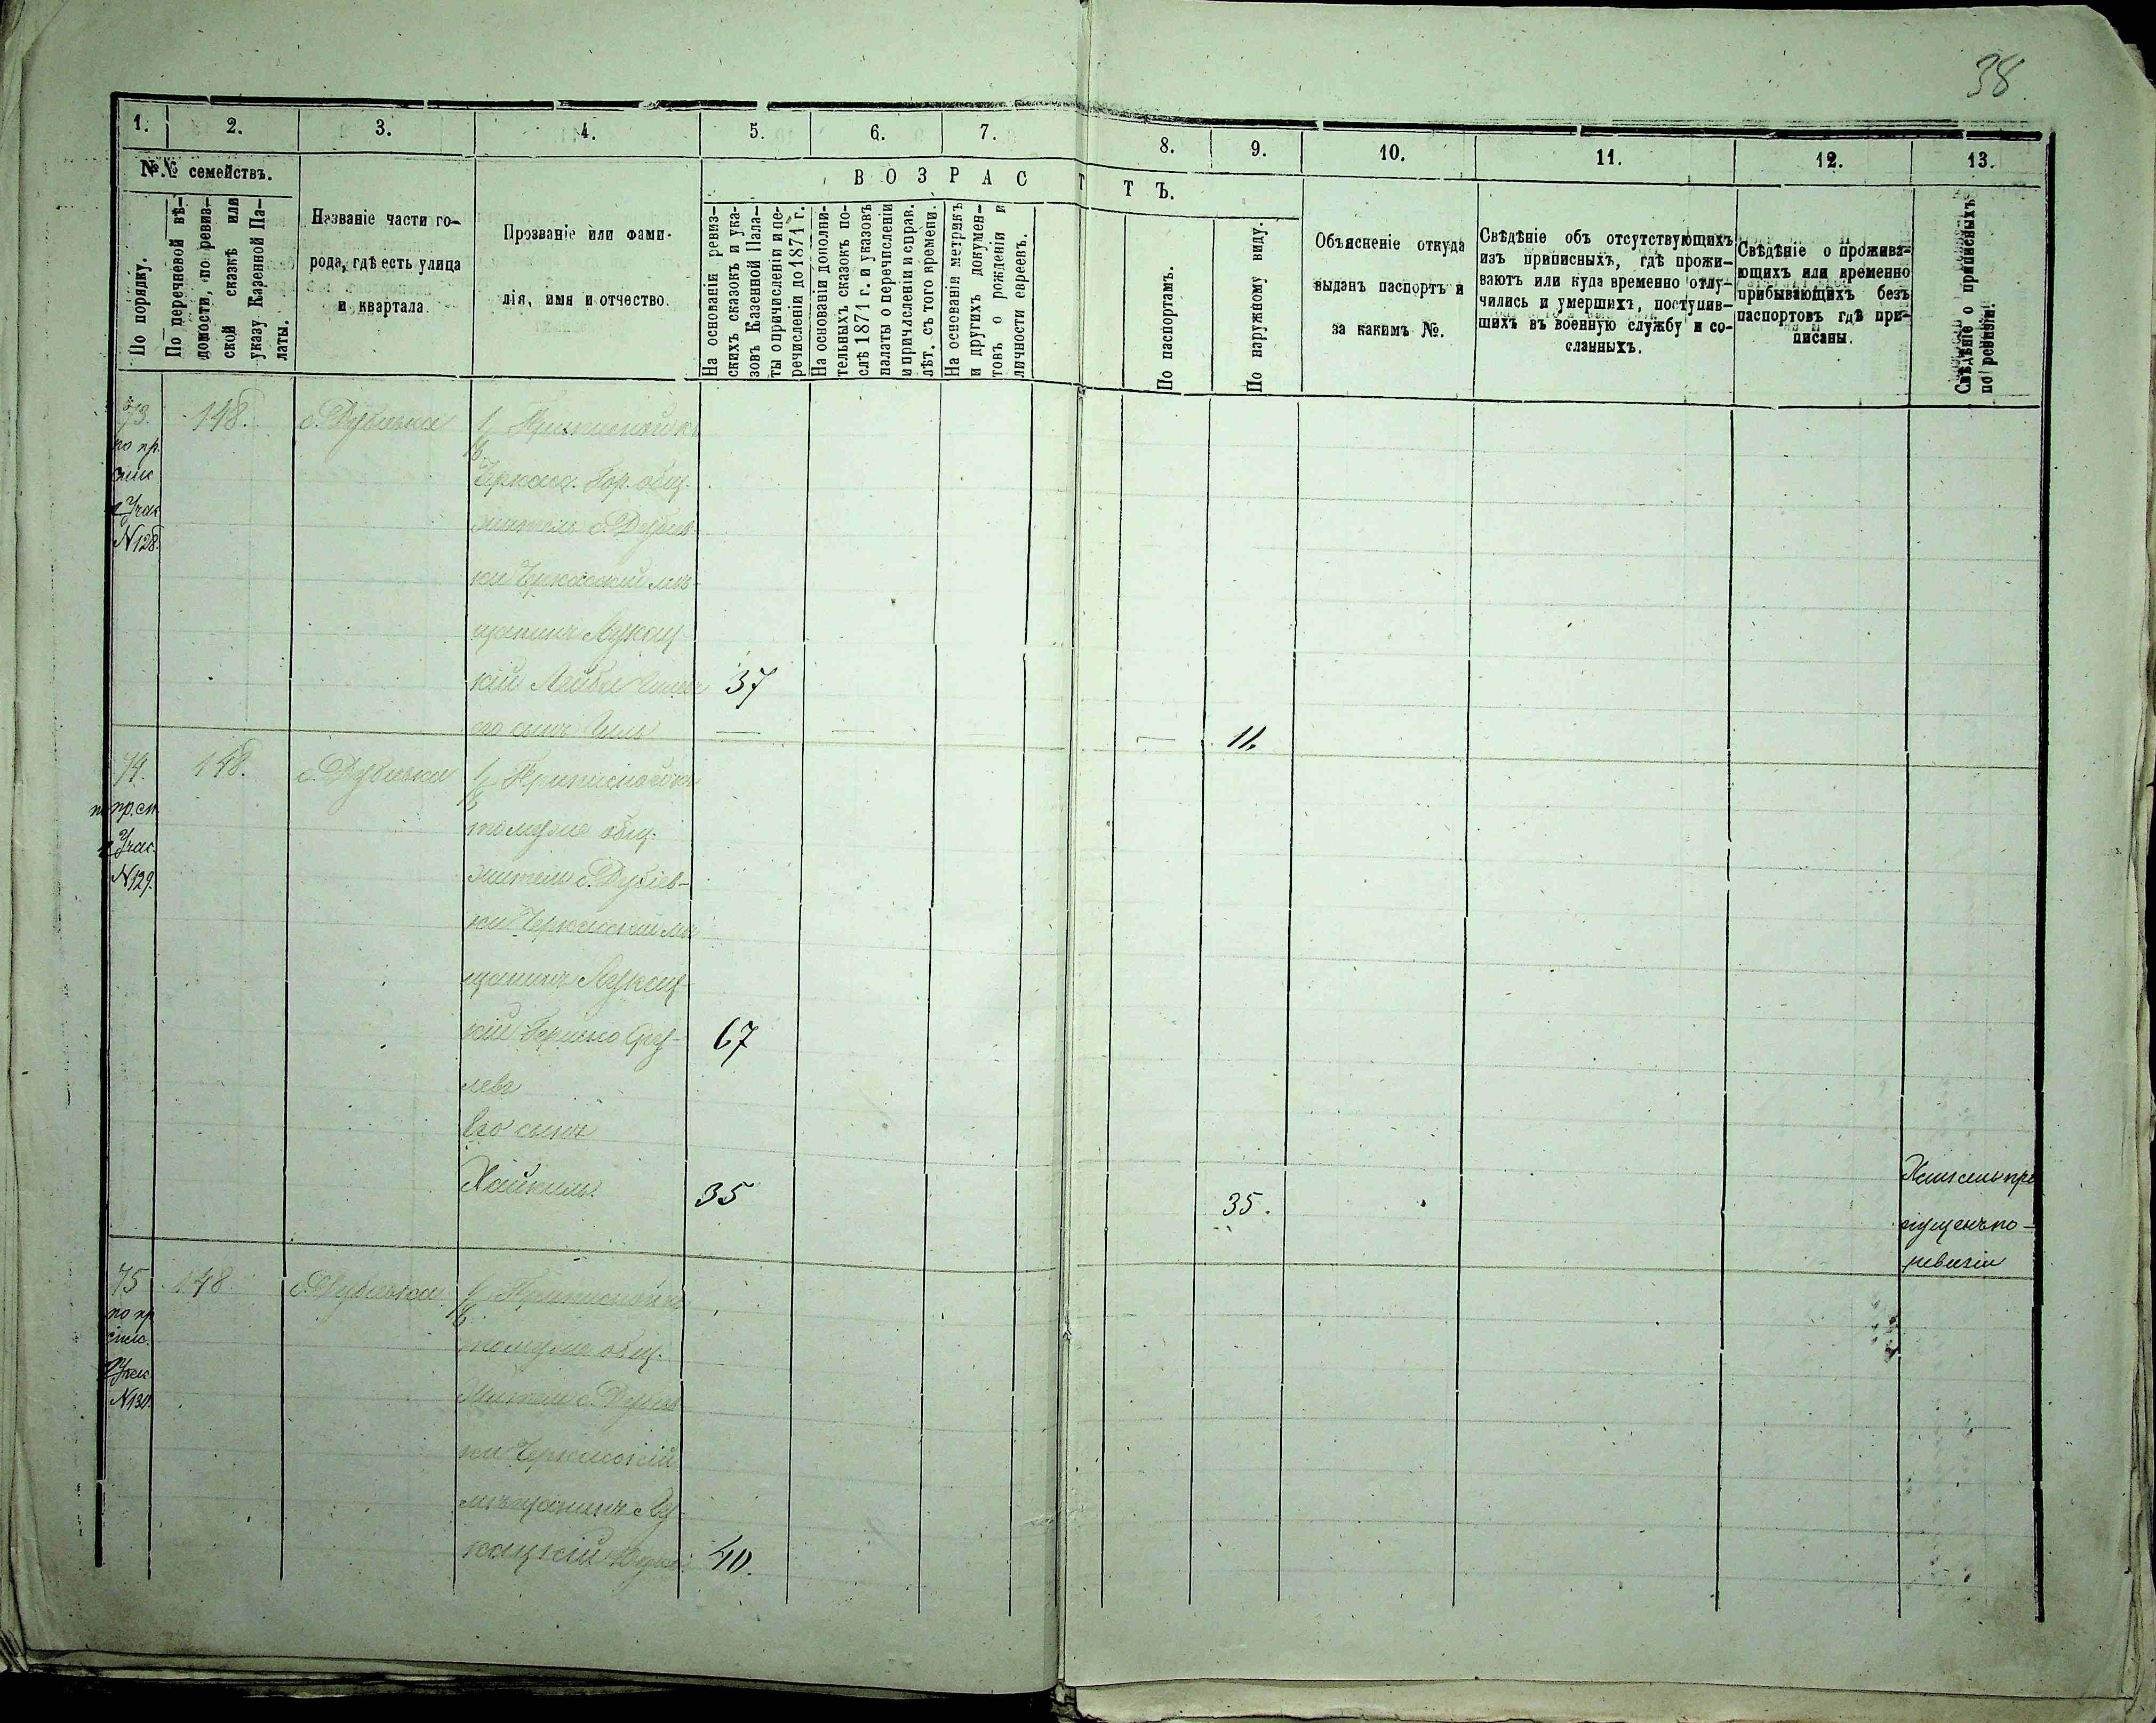 38
1. 2. 3. 4. 5. 6. 7. 8. 9. 10. 11. 12. 13.
№№ семействъ.
По порядку.
По перечневой вѣ-
домости, по ревиз-
ской сказкѣ или
указу Казенной Па-
латы.
Названіе части го-
рода, гдѣ есть улица
и квартала.
Прозваніе или фами-
лія, имя и отчество.
ВОЗРАСТ
ТЪ.
На основаніи ревиз-
скихъ сказокъ и ука-
зовъ Казенной Пала-
ты о причисленіи и пе-
речисленіи до 1871 г.
На основаніи дополни-
тельныхъ сказокъ по-
слѣ 1871 г. и указовъ
палаты о перечисленіи
и причисленіи и справ.
лѣт. съ того времени.
На основаніи метрикъ
и другихъ докумен-
товъ о рожденіи и
личности евреевъ.
По паспортамъ.
По наружному виду.
Объясненіе откуда
выданъ паспортъ и
за какимъ №.
Свѣдѣніе объ отсутствующихъ
изъ приписныхъ, гдѣ прожи-
ваютъ или куда временно отлу-
чились и умершихъ, поступив-
шихъ въ военную службу и со-
сланныхъ.
Свѣдѣніе о прожива-
ющихъ или временно
прибывающихъ безъ
паспортовъ гдѣ при-
писаны.
Свѣдѣніе о приписныхъ
по ревизіи.
73. 148. с. Дубіевка Приписной къ
по пр.
Черкас. Гор. общ.
2 Учас.
житель с. Дубіев-
N 128.
ки Черкасскій мѣ-
щанинъ Лукац-
кій Лейба 37
его сынъ — — — 11.
74. 148. с. Дубіевка Приписной къ
по пр. сп.
тому же общ.
2 Учас.
житель с. Дубіев-
N 129.
ки Черкасскій мѣ
щанинъ Лукац-
кій Гершко Сру- 67
левъ
Его сынъ
Хаикель 35 35.
Хаикель про
пущенъ по-
ревизіи
75 148. с. Дубіевка Приписной къ
по пр
тому же общ.
спис.
2 Учас
Житель с. Дубіев
N 130.
ки Черкасскій
мѣщанинъ Лу-
кацкій 40.